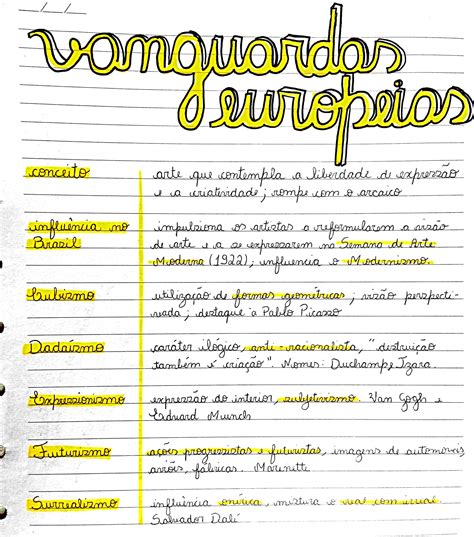 vanguardas
europeias
conceito
arte que contempla a liberdade de expressão
e a criatividade; rompe com o arcaico
influência no
Brasil
impulsiona os artistas a reformularem a visão
de arte e a se expressarem na Semana de Arte
Moderna (1922); influencia o Modernismo.
Cubismo
utilização de formas geométricas; visão perspecti-
vada; destaque a Pablo Picasso
Dadaísmo
caráter ilógico, anti-racionalista, "destruição
também é criação". Nomes: Duchamp e Tzara.
Expressionismo
expressão do interior, subjetivismo. Van Gogh e
Edvard Munch
Futurismo
ações progressistas e futuristas, imagens de automóveis,
aviões, fábricas. Marinetti
Surrealismo
influência onírica, mistura o real com irreal
Salvador Dalí